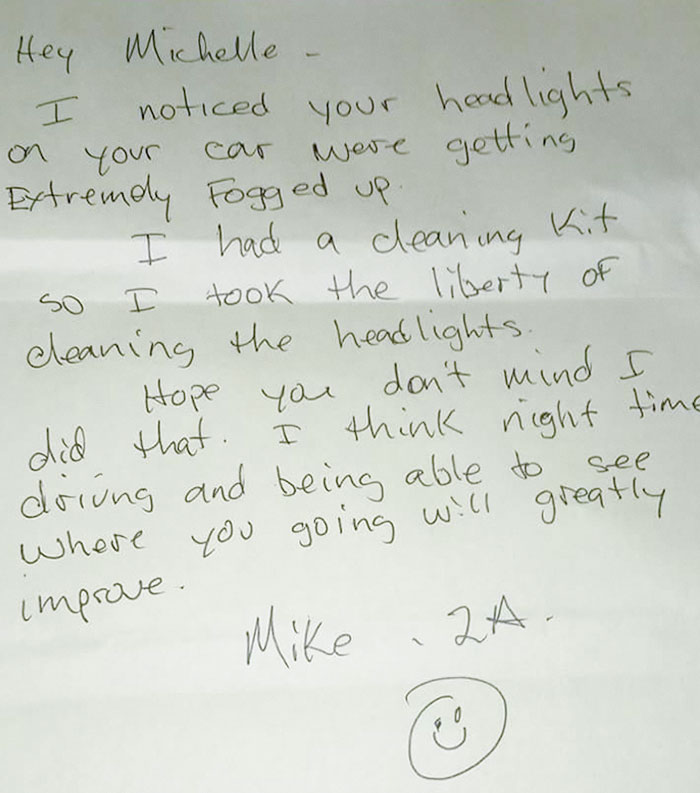 Hey Michelle -
I noticed your headlights
on your car were getting
Extremely Fogged up.
I had a cleaning Kit
so I took the liberty of
cleaning the headlights.
Hope you don't mind I
did that. I think night time
driving and being able to see
where you going will greatly
improve.
Mike . 2A.